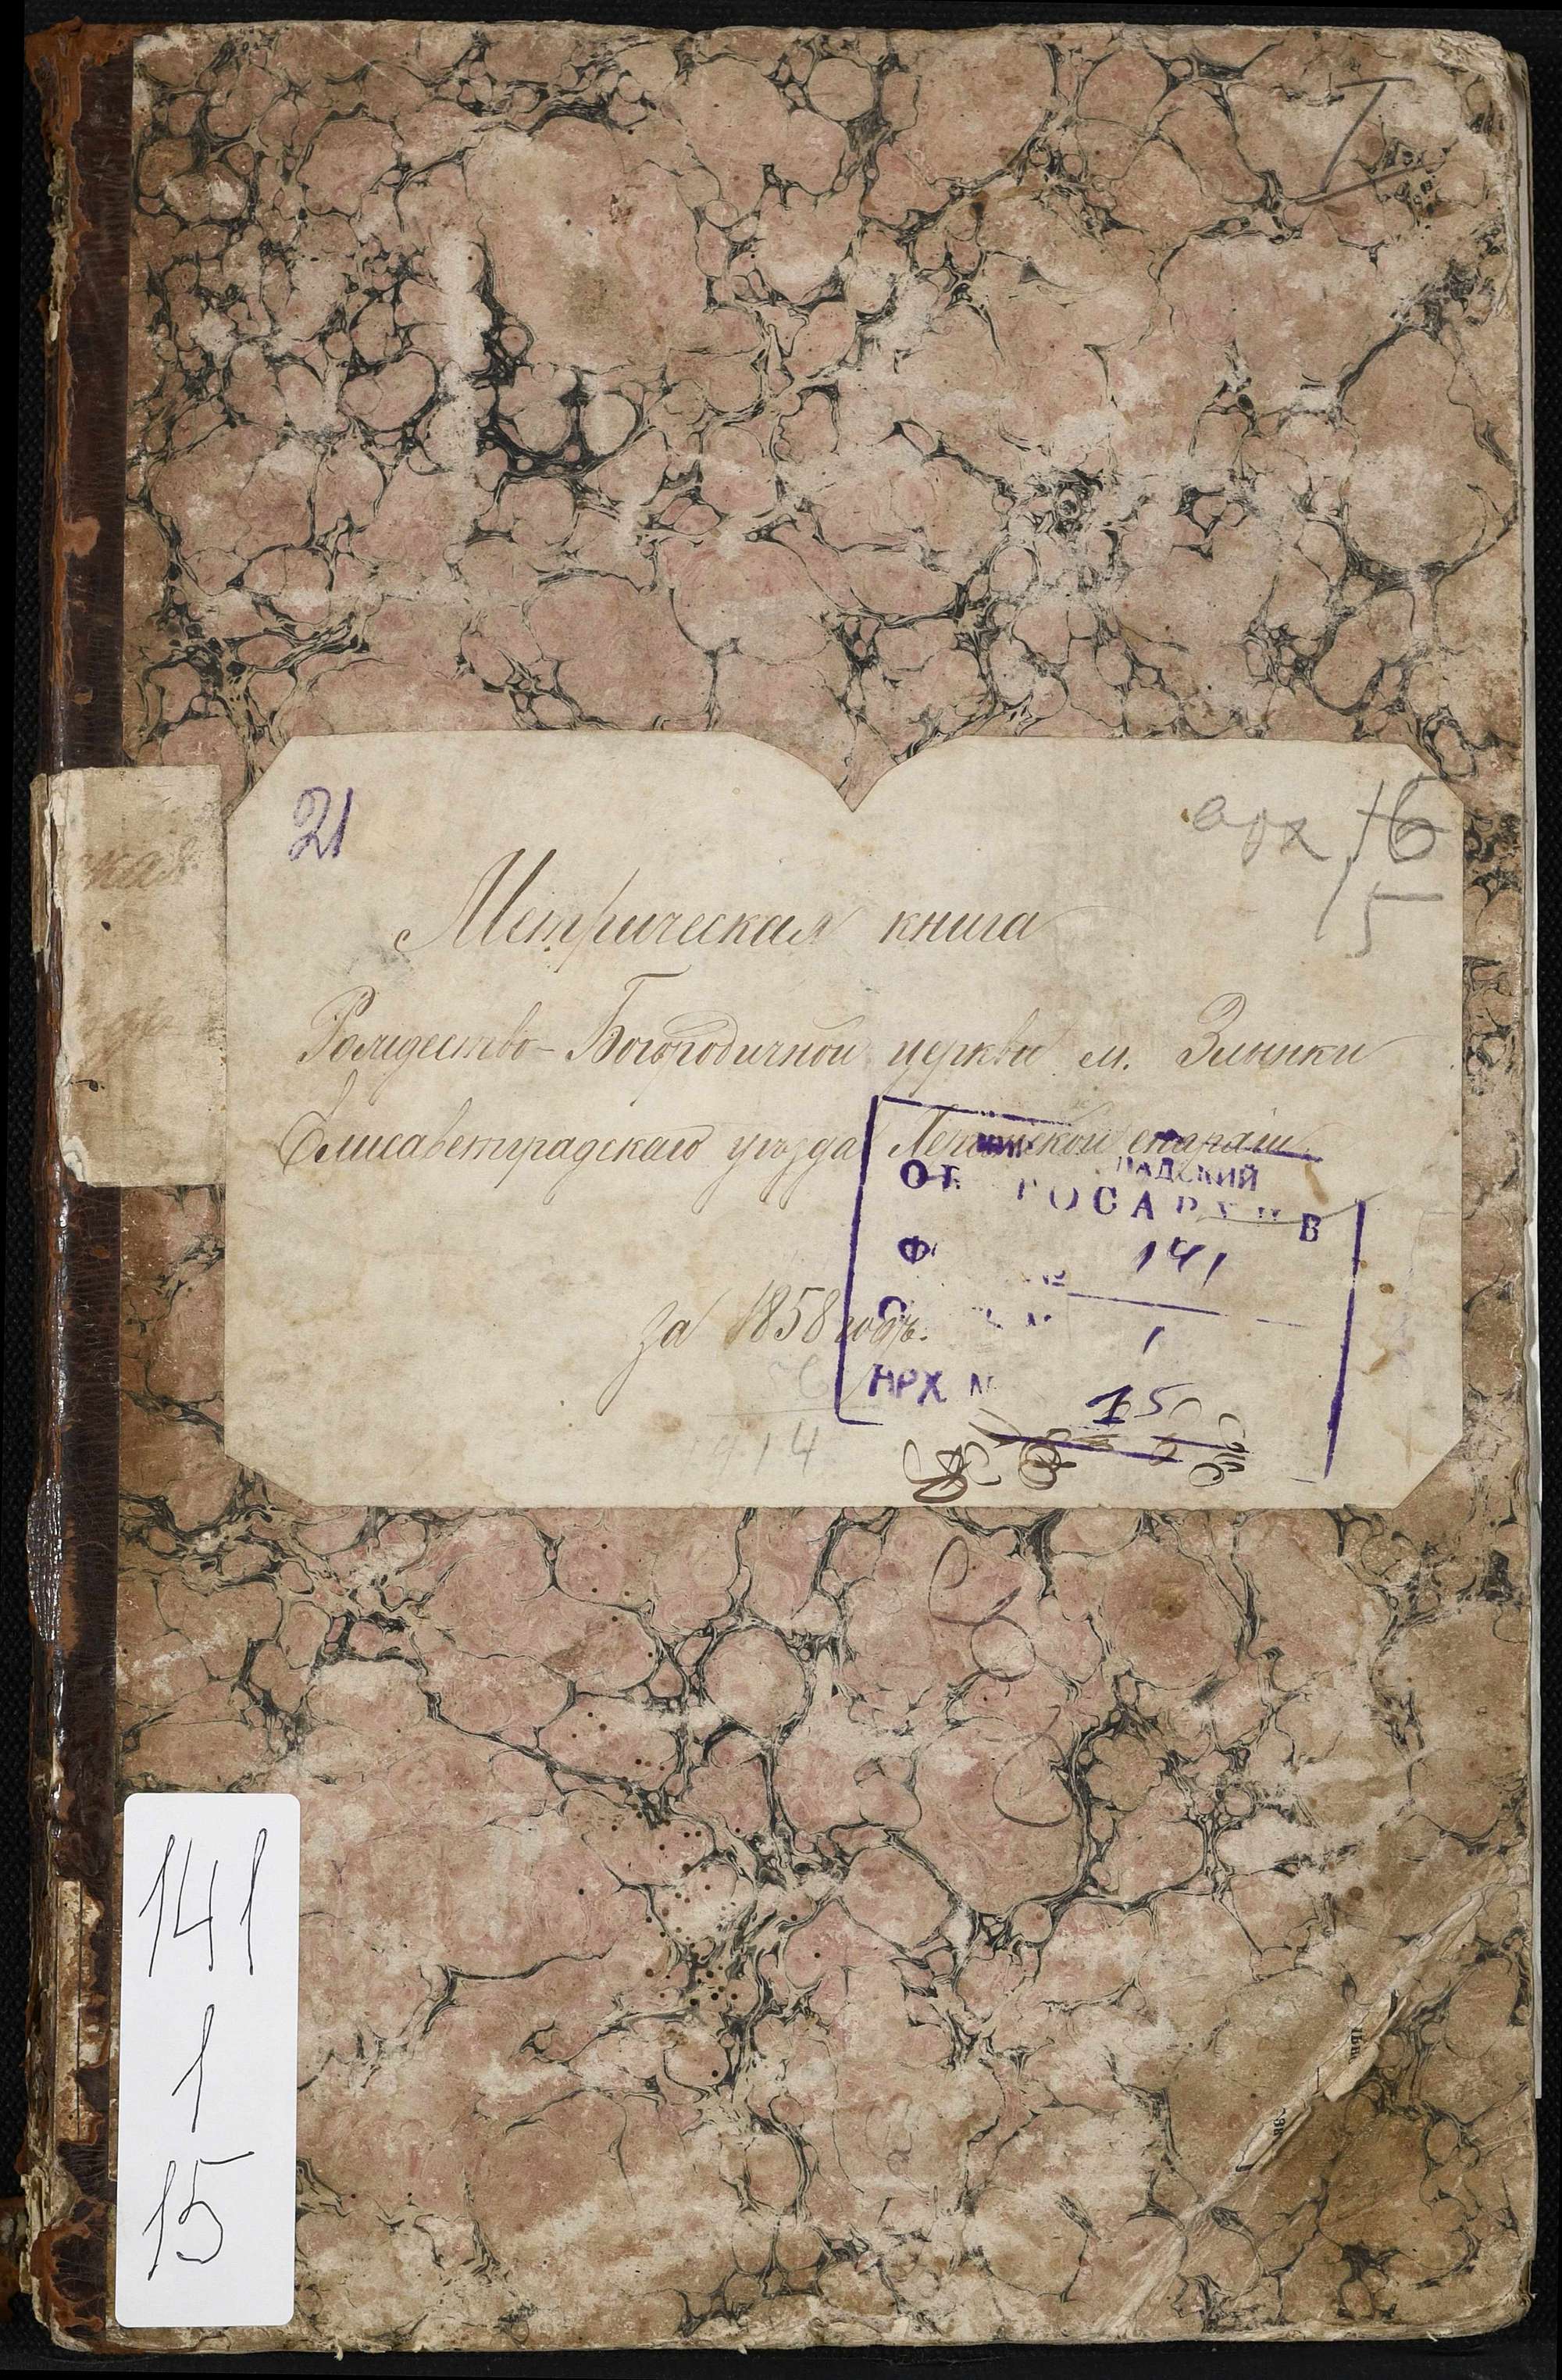 21
арх 16
15
Метрическая книга
Рождество-Богородичной церкви м. Злынки
Елисаветградскаго уѣзда епархіи
за 1858 годъ.
ГОСАРХИВ
141
1
АРХ №
15
914
141
1
15